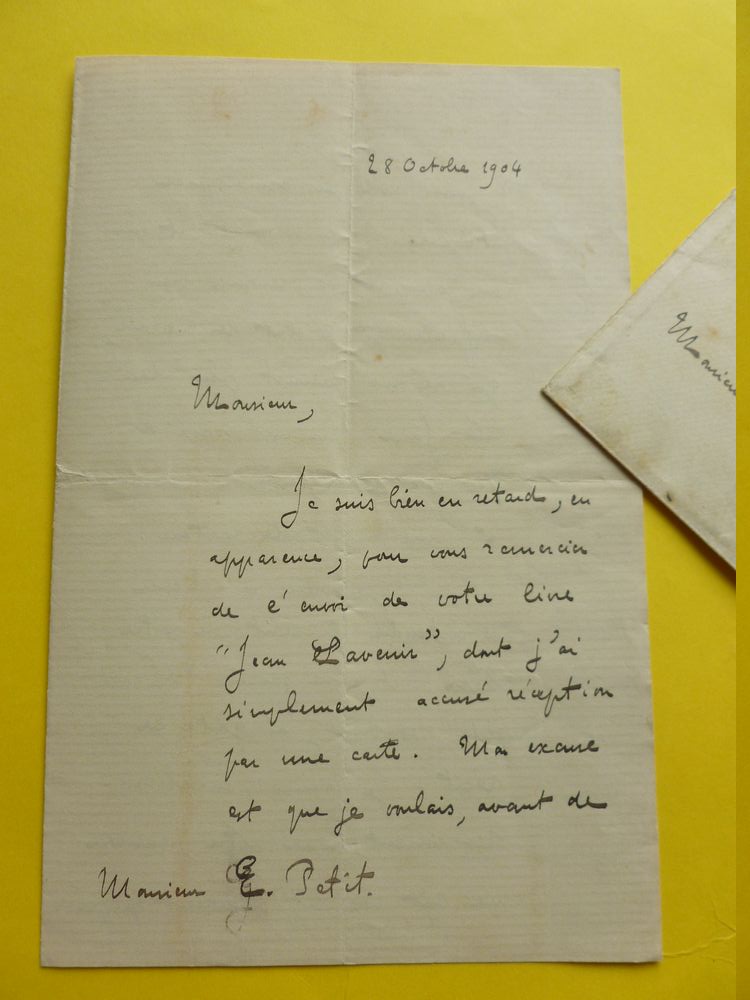 28 Octobre 1904
Monsieur,
Je suis bien en retard, en
apparence, pour vous remercier
de l'envoi de votre livre
"Jean Lavenir", dont j'ai
simplement accusé réception
par une carte. Ma excuse
est que je voulais, avant de
Monsieur E. Petit.
Monsieur